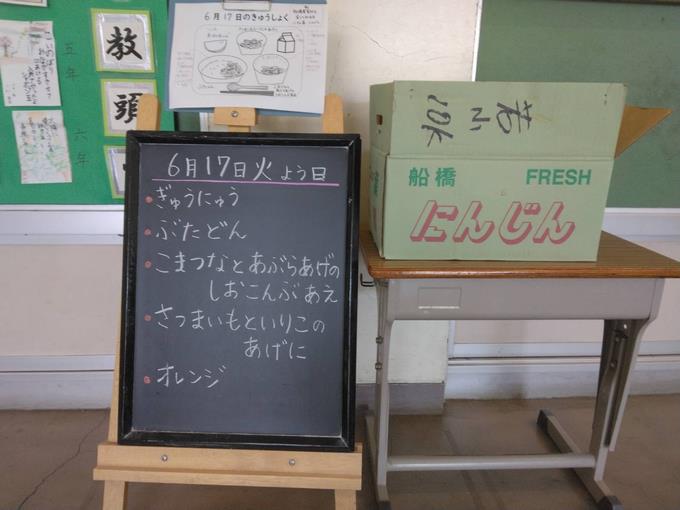 6月17日のきゅうしょく
教
頭
五年
六年
6月17日火よう日
ぎゅうにゅう
ぶたどん
こまつなとあぶらあげの
しおこんぶあえ
さつまいもといりこの
あげに
オレンジ
若小
10K
船橋
FRESH
にんじん